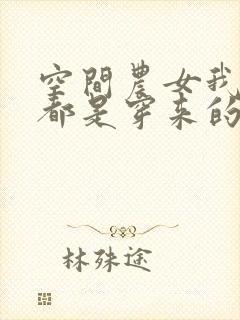 空間農女我
都是穿来的
林殊途